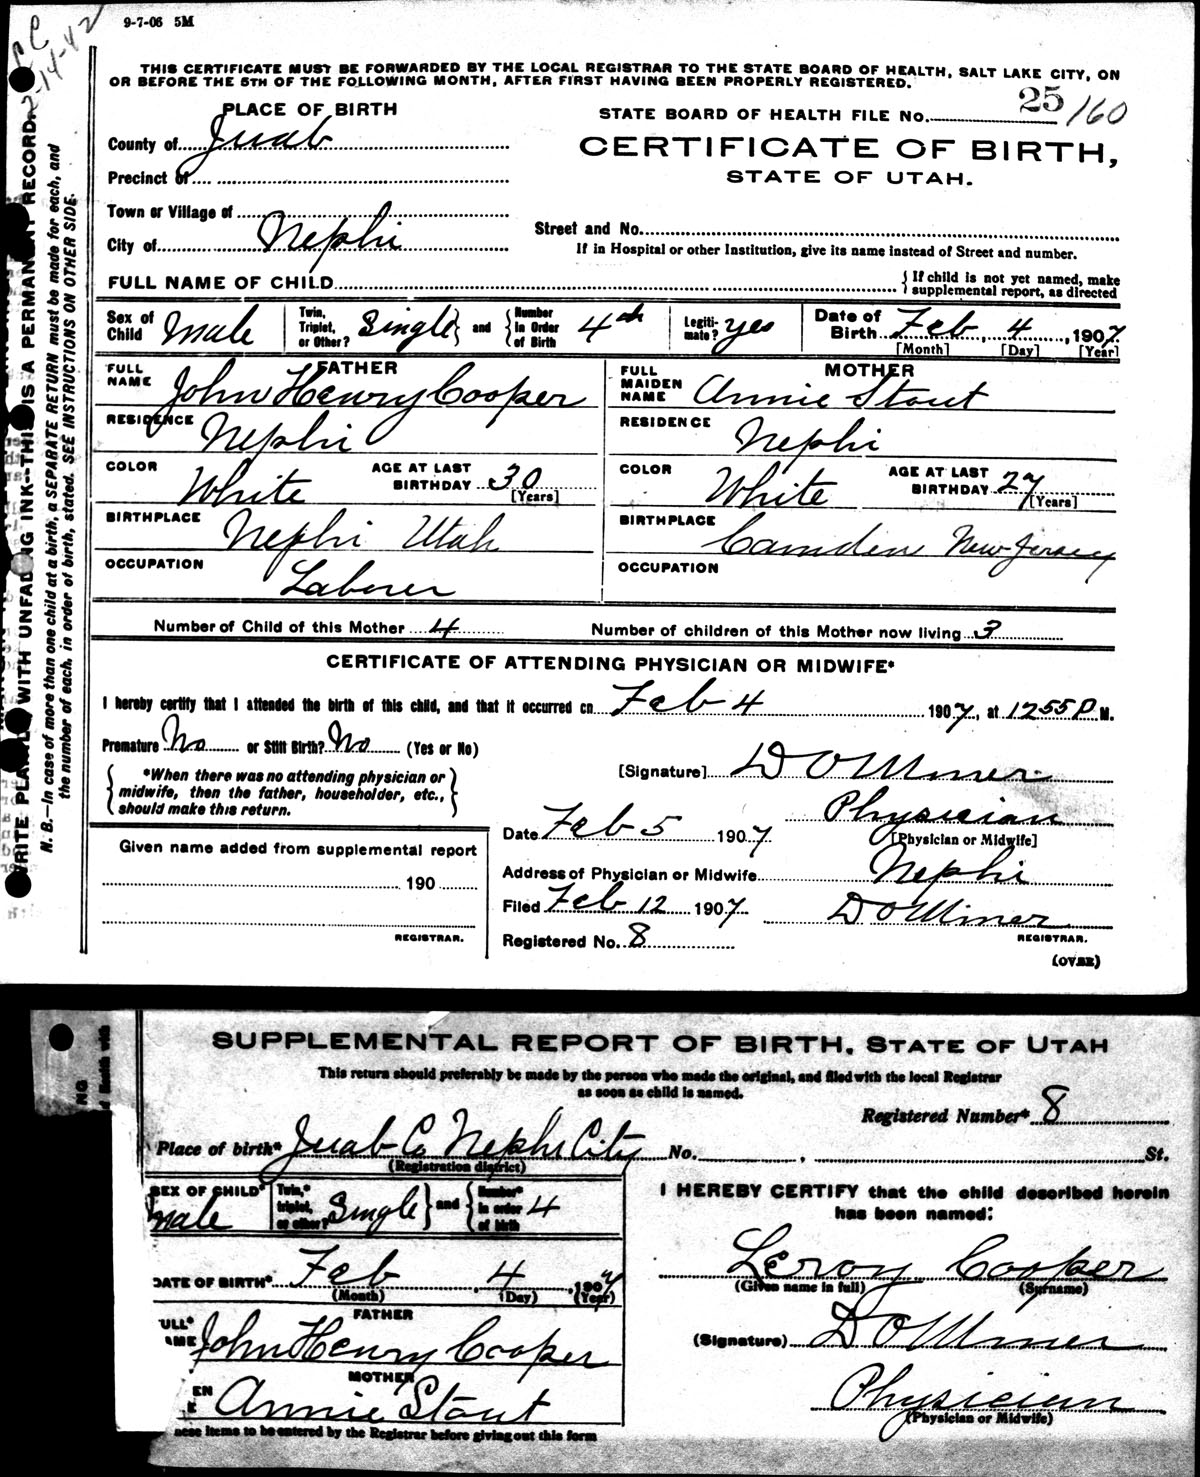 9-7-06 5M
CC
2-14-42
THIS CERTIFICATE MUST BE FORWARDED BY THE LOCAL REGISTRAR TO THE STATE BOARD OF HEALTH, SALT LAKE CITY, ON
OR BEFORE THE 5TH OF THE FOLLOWING MONTH, AFTER FIRST HAVING BEEN PROPERLY REGISTERED.
WRITE PLAINLY WITH UNFADING INK--THIS IS A PERMANENT RECORD.
N. B.—In case of more than one child at a birth, a SEPARATE RETURN must be made for each, and
the number of each, in order of birth, stated. SEE INSTRUCTIONS ON OTHER SIDE.
PLACE OF BIRTH
County of Juab
Precinct of
Town or Village of
City of Nephi
STATE BOARD OF HEALTH FILE No. 25/160
CERTIFICATE OF BIRTH,
STATE OF UTAH.
Street and No.
If in Hospital or other Institution, give its name instead of Street and number.
FULL NAME OF CHILD { If child is not yet named, make
supplemental report, as directed
Sex of Child Male Twin, Triplet, or Other? Single } and { Number In Order of Birth 4th Legiti-mate? yes Date of Birth Feb, 4, 1907
[Month] [Day] [Year]
FATHER
FULL NAME John Henry Cooper
RESIDENCE Nephi
COLOR White AGE AT LAST BIRTHDAY 30 [Years]
BIRTHPLACE Nephi Utah
OCCUPATION Laborer
MOTHER
FULL MAIDEN NAME Annie Stout
RESIDENCE Nephi
COLOR White AGE AT LAST BIRTHDAY 27 [Years]
BIRTHPLACE Camden New-Jersey
OCCUPATION
Number of Child of this Mother 4 Number of children of this Mother now living 3
CERTIFICATE OF ATTENDING PHYSICIAN OR MIDWIFE*
I hereby certify that I attended the birth of this child, and that it occurred on Feb 4 1907, at 1255 P M.
Premature No or Still Birth? No (Yes or No)
{ *When there was no attending physician or
midwife, then the father, householder, etc.,
should make this return. }
[Signature] D O Miner
Physician
[Physician or Midwife]
Date Feb 5 1907
Address of Physician or Midwife Nephi
Filed Feb 12 1907 D O Miner
REGISTRAR.
Registered No. 8
(OVER)
Given name added from supplemental report
190
REGISTRAR.
SUPPLEMENTAL REPORT OF BIRTH, STATE OF UTAH
This return should preferably be made by the person who made the original, and filed with the local Registrar
as soon as child is named.
Registered Number* 8
Place of birth* Juab Co Nephi City No. , St.
(Registration district)
SEX OF CHILD* Male Twin,* triplet, or other? Single } and { Number* in order of birth 4
DATE OF BIRTH* Feb, 4, 1907
(Month) (Day) (Year)
FATHER
John Henry Cooper
MOTHER
Annie Stout
these items to be entered by the Registrar before giving out this form
I HEREBY CERTIFY that the child described herein
has been named:
Leroy Cooper
(Given name in full) (Surname)
(Signature) D O Miner
Physician
(Physician or Midwife)